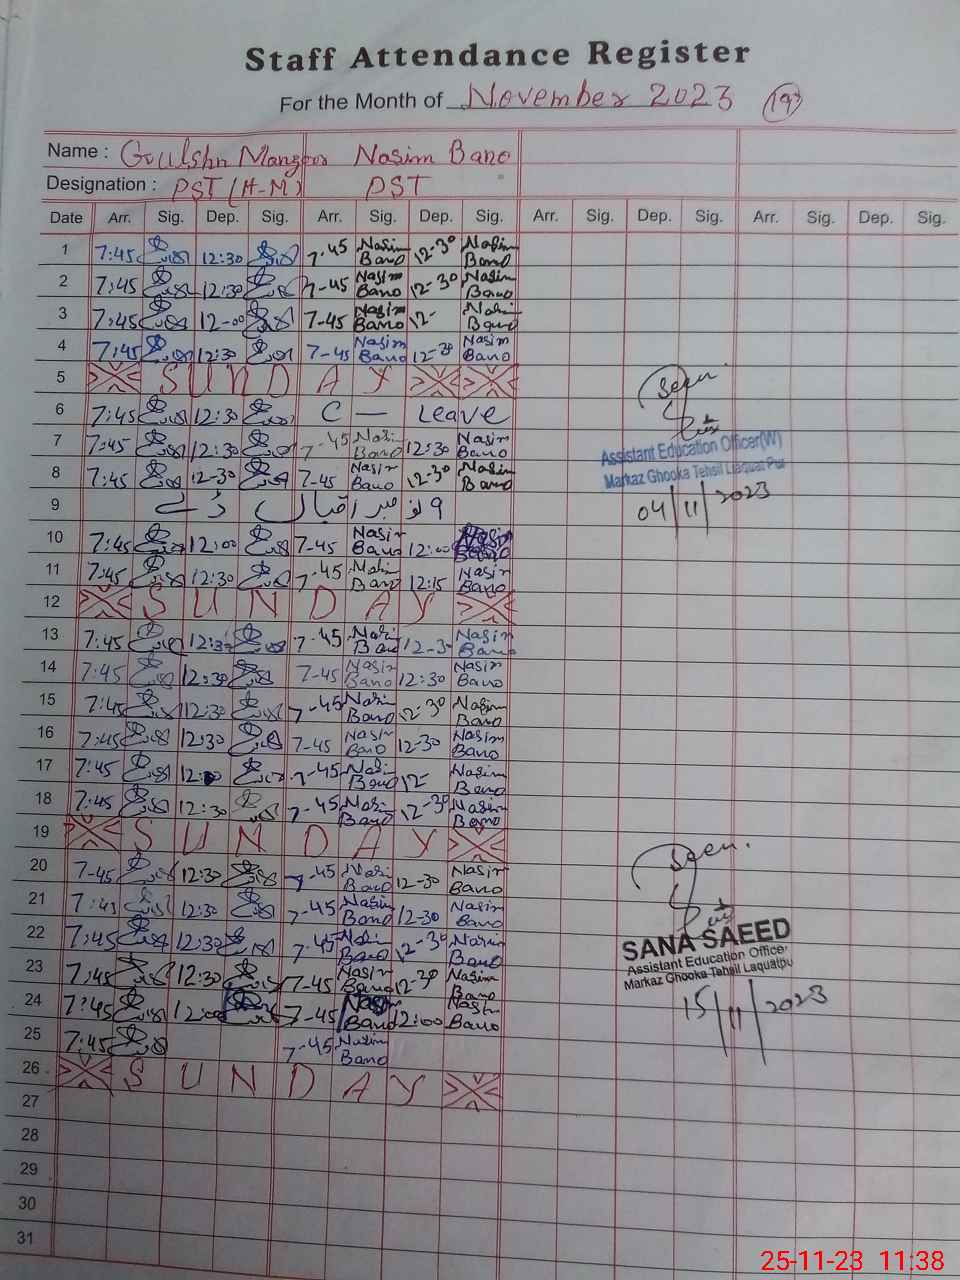 Staff Attendance Register
For the Month of November 2023 193
Name : Gulshn Manzoor Nasim Bano
Designation : PST (H-M) PST
Date Arr. Sig. Dep. Sig. Arr. Sig. Dep. Sig. Arr. Sig. Dep. Sig. Arr. Sig. Dep. Sig.
1 7:45 12:30 7-45 Nasim Bano 12-30 Nasim Bano
2 7:45 12:30 7-45 Nasim Bano 12-30 Nasim Bano
3 7:45 12-00 7-45 Nasim Bano 12- Nasim Bano
4 7:45 12:30 7-45 Nasim Bano 12-30 Nasim Bano
5 SUNDAY
6 7:45 12:30 C — Leave
7 7:45 12:30 7-45 Nasim Bano 12:30 Nasim Bano
8 7:45 12-30 7-45 Nasim Bano 12-30 Nasim Bano
9 9 نومبر اقبال ڈے
10 7:45 12:00 7-45 Nasim Bano 12:00 Nasim Bano
11 7:45 12:30 7-45 Nasim Bano 12:15 Nasim Bano
12 SUNDAY
13 7:45 12:30 7-45 Nasim Bano 12-30 Nasim Bano
14 7:45 12:30 7-45 Nasim Bano 12:30 Nasim Bano
15 7:45 12:30 7-45 Nasim Bano 12-30 Nasim Bano
16 7:45 12:30 7-45 Nasim Bano 12-30 Nasim Bano
17 7:45 7-45 Nasim Bano 12- Nasim Bano
18 7:45 12:30 7-45 Nasim Bano 12-30 Nasim Bano
19 SUNDAY
20 7-45 12:30 7-45 Nasim Bano 12-30 Nasim Bano
21 7:45 12:30 7-45 Nasim Bano 12-30 Nasim Bano
22 7:45 12:30 7-45 Nasim Bano 12-30 Nasim Bano
23 7:45 12:30 7-45 Nasim Bano 12-30 Nasim Bano
24 7:45 12:00 7-45 Nasim Bano 12:00 Nasim Bano
25 7:45 7-45 Nasim Bano
26 SUNDAY
27
28
29
30
31
Seen.
Assistant Education Officer(W)
Markaz Ghooka Tehsil Liaquat Pur
04/11/2023
Seen.
SANA SAEED
Assistant Education Officer
Markaz Ghooka Tehsil Laquatpu
15/11/2023
25-11-23 11:38